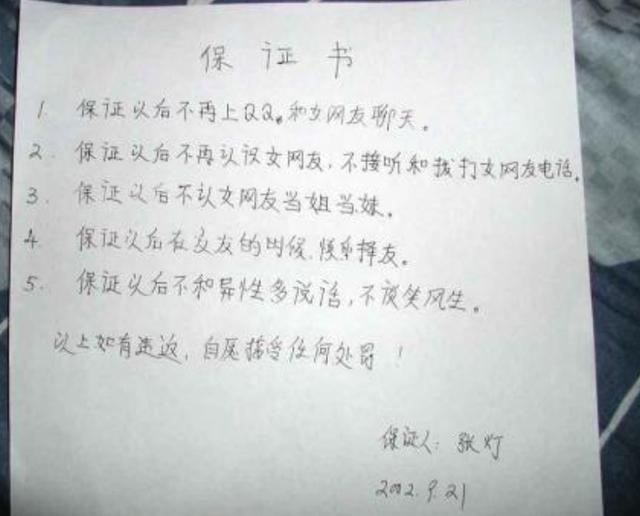 保证书
1. 保证以后不再上QQ。和女网友聊天。
2. 保证以后不再认识女网友，不接听和拨打女网友电话。
3. 保证以后不认女网友当姐当妹。
4. 保证以后在交友的时候，慎重择友。
5. 保证以后不和异性多说话，不谈笑风生。
以上如有违返，自愿接受任何处罚！
保证人：张灯
2002.9.21